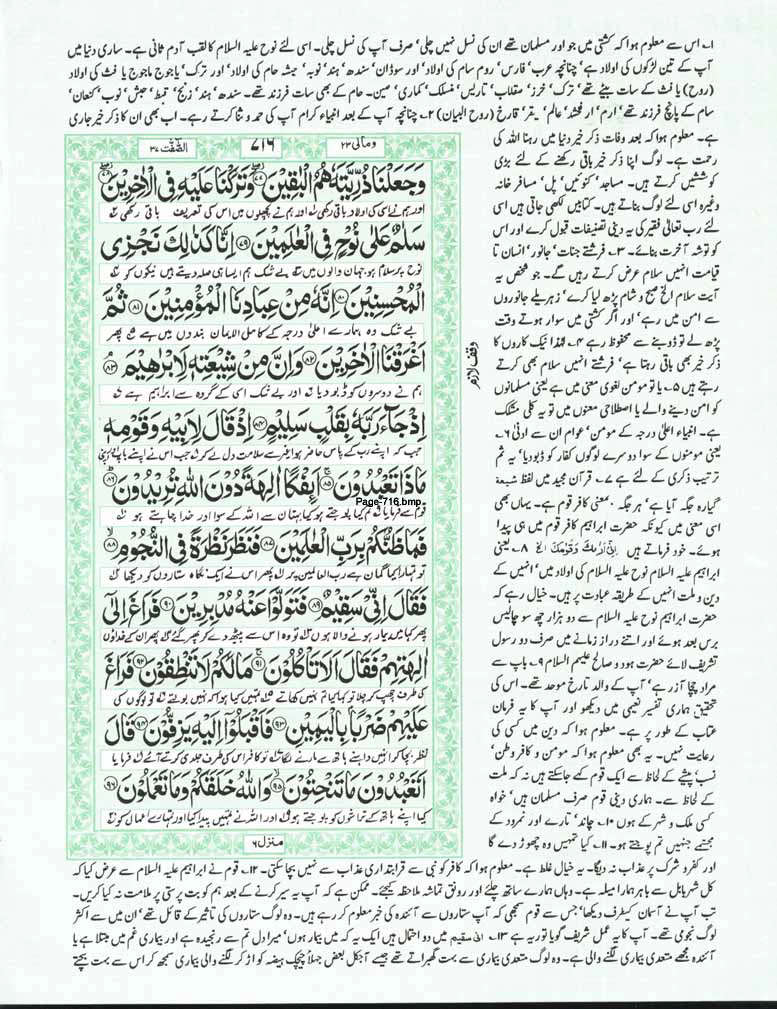 ۱۔ اس سے معلوم ہوا کہ کشتی میں جو اور مسلمان تھے ان کی نسل نہیں چلی‘ صرف آپ کی نسل چلی۔ اسی لئے نوح علیہ السلام کا لقب آدم ثانی ہے۔ ساری دنیا میں
آپ کے تین لڑکوں کی اولاد ہے‘ چنانچہ عرب‘ فارس‘ روم سام کی اولاد‘ اور سوڈان‘ سندھ‘ ہند‘ نوبہ‘ حبشہ حام کی اولاد‘ اور ترک‘ یاجوج ماجوج یا فث کی اولاد
(روح) یا فث کے سات بیٹے تھے‘ ترک‘ خرز‘ مقلاب‘ تاریس‘ منسلک‘ کماری‘ صین۔ حام کے بھی سات فرزند تھے۔ سندھ‘ ہند‘ زنج‘ قبط‘ حبش‘ نوب‘ کنعان‘
سام کے پانچ فرزند تھے‘ ارم‘ ار فخشد‘ عالم‘ (روح البیان) ۲۔ چنانچہ آپ کے بعد انبیاء کرام آپ کی حمد و ثنا کرتے رہے۔ اب بھی ان کا ذکر خیر جاری
الصّٰٓفّٰت ۳۷
۷۱۶
ومالی ۲۳
وَجَعَلْنَا ذُرِّيَّتَهٗ هُمُ الْبٰقِيْنَ ۷۷ وَتَرَكْنَا عَلَيْهِ فِي الْاٰخِرِيْنَ ۷۸
اور ہم نے اسی کی اولاد باقی رکھی اور ہم نے پچھلوں میں اس کی تعریف باقی رکھی
سَلٰمٌ عَلٰى نُوْحٍ فِي الْعٰلَمِيْنَ ۷۹ اِنَّا كَذٰلِكَ نَجْزِي
نوح پر سلام ہو جہان والوں میں بے شک ہم ایسا ہی صلہ دیتے ہیں نیکوں کو
الْمُحْسِنِيْنَ ۸۰ اِنَّهٗ مِنْ عِبَادِنَا الْمُؤْمِنِيْنَ ۸۱ ثُمَّ
بے شک وہ ہمارے اعلیٰ درجہ کے کامل الایمان بندوں میں ہے پھر
اَغْرَقْنَا الْاٰخَرِيْنَ ۸۲ وَاِنَّ مِنْ شِيْعَتِهٖ لَاِبْرٰهِيْمَ ۸۳
ہم نے دوسروں کو ڈبو دیا اور بے شک اسی کے گروہ سے ابراہیم ہے
اِذْ جَآءَ رَبَّهٗ بِقَلْبٍ سَلِيْمٍ ۸۴ اِذْ قَالَ لِاَبِيْهِ وَقَوْمِهٖ
جب کہ اپنے رب کے پاس حاضر ہوا غیر سے سلامت دل لے کر جب اس نے اپنے باپ اور اپنی
مَاذَا تَعْبُدُوْنَ ۸۵ اَئِفْكًا اٰلِهَةً دُوْنَ اللّٰهِ تُرِيْدُوْنَ ۸۶
Page-716.bmp
قوم سے فرمایا تم کیا پوجتے ہو کیا بہتان سے اللہ کے سوا اور خدا چاہتے ہو
فَمَا ظَنُّكُمْ بِرَبِّ الْعٰلَمِيْنَ ۸۷ فَنَظَرَ نَظْرَةً فِي النُّجُوْمِ ۸۸
تو تمہارا کیا گمان ہے رب العالمین پر پھر اس نے ایک نگاہ ستاروں کو دیکھا
فَقَالَ اِنِّيْ سَقِيْمٌ ۸۹ فَتَوَلَّوْا عَنْهُ مُدْبِرِيْنَ ۹۰ فَرَاغَ اِلٰٓى
پھر کہا میں بیمار ہونے والا ہوں تو وہ اس سے پیٹھ دے کر پھر گئے پھر ان کے خداؤں
اٰلِهَتِهِمْ فَقَالَ اَلَا تَاْكُلُوْنَ ۹۱ مَالَكُمْ لَا تَنْطِقُوْنَ ۹۲ فَرَاغَ
کی طرف چھپ کر چلا تو کہا کیا تم نہیں کھاتے تمہیں کیا ہوا کہ نہیں بولتے تو لوگوں کی
عَلَيْهِمْ ضَرْبًا بِالْيَمِيْنِ ۹۳ فَاَقْبَلُوْٓا اِلَيْهِ يَزِفُّوْنَ ۹۴ قَالَ
نظر بچا کر انہیں داہنے ہاتھ سے مارنے لگا تو کافر اس کی طرف جلدی کرتے آئے فرمایا
اَتَعْبُدُوْنَ مَا تَنْحِتُوْنَ ۹۵ وَاللّٰهُ خَلَقَكُمْ وَمَا تَعْمَلُوْنَ ۹۶
کیا اپنے ہاتھ کے تراشوں کو پوجتے ہو اور اللہ نے تمہیں پیدا کیا اور تمہارے اعمال کو
منزل ۶
وقف لازم
ہے۔ معلوم ہوا کہ بعد وفات ذکر خیر دنیا میں رہنا اللہ کی
رحمت ہے۔ لوگ اپنا ذکر خیر باقی رکھنے کے لئے بڑی
کوششیں کرتے ہیں۔ مساجد‘ کنوئیں‘ پل‘ مسافر خانہ
وغیرہ اسی لئے لوگ بناتے ہیں۔ کتابیں لکھی جاتی ہیں اسی
لئے رب تعالیٰ فقیر کی یہ دینی تصنیفات قبول کرے اور اس
کو توشہ آخرت بنائے۔ ۳۔ فرشتے جنات‘ جانور‘ انسان تا
قیامت انہیں سلام عرض کرتے رہیں گے۔ جو شخص یہ
آیت سلام الخ صبح و شام پڑھ لیا کرے‘ زہریلے جانوروں
سے امن میں رہے‘ اور اگر کشتی میں سوار ہوتے وقت
پڑھ لے تو ڈوبنے سے محفوظ رہے ۴۔ لہٰذا نیک کاروں کا
ذکر خیر بھی باقی رہتا ہے‘ فرشتے انہیں سلام بھی کرتے
رہتے ہیں ۵۔ یا تو مومن لغوی معنی میں ہے یعنی مسلمانوں
کو امن دینے والے یا اصطلاحی معنوں میں تو یہ کلی مشکک
ہے۔ انبیاء اعلیٰ درجہ کے مومن‘ عوام ان سے ادنیٰ ۶۔
یعنی مومنوں کے سوا دوسرے لوگوں کفار کو ڈبو دیا‘ یہ ثم
ترتیب ذکری کے لئے ہے ۷۔ قرآن مجید میں لفظ شیعۃ
گیارہ جگہ آیا ہے‘ ہر جگہ بمعنی کافر قوم ہے۔ یہاں بھی
اسی معنی میں کیونکہ حضرت ابراہیم کافر قوم میں ہی پیدا
ہوئے۔ خود فرماتے ہیں اِنِّیْٓ اَرٰىكَ وَقَوْمَكَ الخ ۸۔ یعنی
ابراہیم علیہ السلام نوح علیہ السلام کی اولاد میں‘ انہیں کے
دین و ملت انہیں کے طریقہ عبادت پر ہیں۔ خیال رہے کہ
حضرت ابراہیم نوح علیہ السلام سے دو ہزار چھ سو چالیس
برس بعد ہوئے اور اتنے دراز زمانے میں صرف دو رسول
تشریف لائے حضرت ہود و صالح علیہم السلام ۹۔ باپ سے
مراد چچا آزر ہے‘ آپ کے والد تارخ موحد تھے۔ اس کی
تحقیق ہماری تفسیر نعیمی میں دیکھو اور آپ کا یہ فرمان
عتاب کے طور پر ہے۔ معلوم ہوا کہ دین میں کسی کی
رعایت نہیں۔ یہ بھی معلوم ہوا کہ مومن و کافر وطن‘
نسب‘ پیشے کے لحاظ سے ایک قوم کہے جاسکتے ہیں نہ کہ ملت
کے لحاظ سے۔ ہماری دینی قوم صرف مسلمان ہیں‘ خواہ
کسی ملک و شہر کے ہوں ۱۰۔ چاند‘ تارے اور نمرود کے
مجسمے جنہیں تم پوجتے ہو۔ ۱۱۔ کیا تمہیں وہ چھوڑ دے گا
اور کفر و شرک پر عذاب نہ دیگا۔ یہ خیال غلط ہے۔ معلوم ہوا کہ کافر کو نبی سے قرابتداری عذاب سے نہیں بچا سکتی۔ ۱۲۔ قوم نے ابراہیم علیہ السلام سے عرض کیا کہ
کل شہر بابل سے باہر ہمارا میلہ ہے۔ وہاں ہمارے ساتھ چلئے اور رونق تماشہ ملاحظہ کیجئے۔ ممکن ہے کہ آپ یہ سیر کرنے کے بعد ہم کو بت پرستی پر ملامت نہ کیا کریں۔
تب آپ نے آسمان کیطرف دیکھا‘ جس سے قوم سمجھی کہ آپ ستاروں سے آئندہ کی خبر معلوم کر رہے ہیں۔ وہ لوگ ستاروں کی تاثیر کے قائل تھے‘ ان میں سے اکثر
لوگ نجومی تھے۔ آپ کا یہ عمل شریف گویا توریہ ہے ۱۳۔ انی سقیم میں دو احتمال ہیں ایک یہ کہ میں بیمار ہوں‘ میرا دل تم سے رنجیدہ ہے اور بیماری غم میں مبتلا ہے یا
آئندہ مجھے متعدی بیماری لگنے والی ہے۔ وہ لوگ متعدی بیماری سے بہت گھبراتے تھے جیسے آجکل بعض جہلاً چیچک ہیضہ کو اڑ کر لگنے والی بیماری سمجھ کر اس سے بہت بچتے